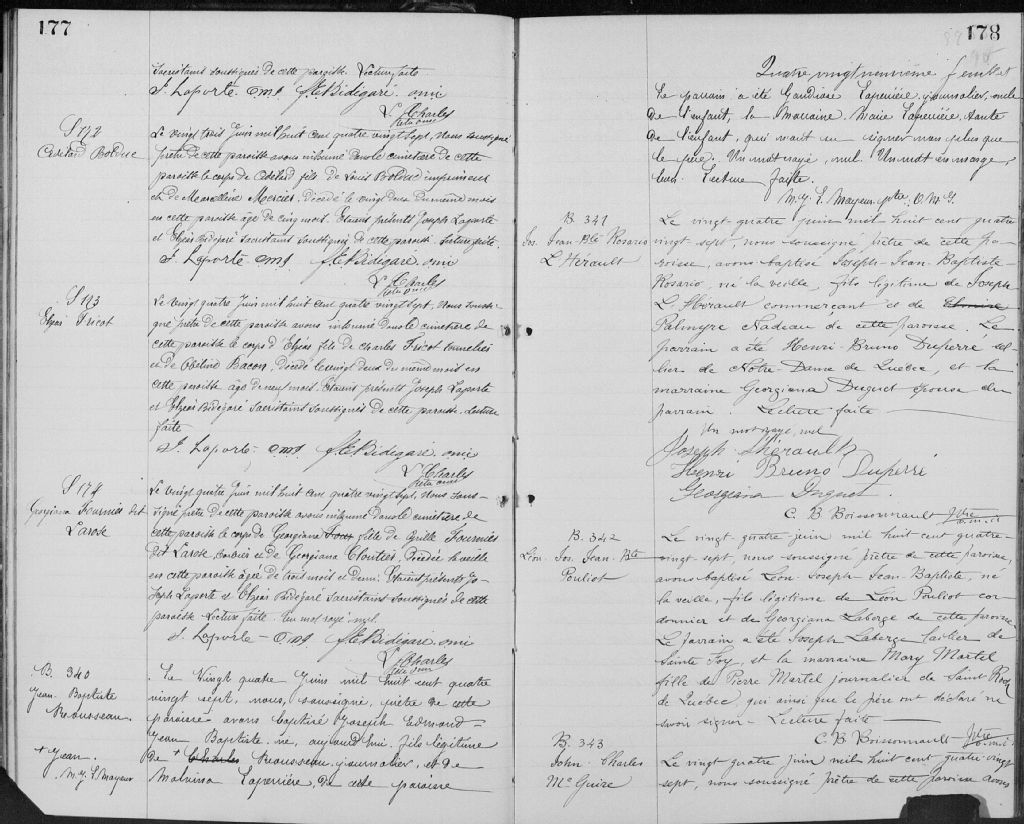 177
Sacristains soussignés de cette paroisse. Lecture faite.
J. Laporte. omi J.E. Bidégaré. omi
L. Charles
Ptre omi
S 172
Odilard Bolduc
Le vingt trois Juin mil huit cent quatre vingt sept. Nous soussigné
prêtre de cette paroisse avons inhumé dans le cimetière de cette
paroisse le corps de Odilard fils de Louis Bolduc imprimeur
et de Marcelline Mercier. Décédé le vingt deux du même mois
en cette paroisse âgé de cinq mois. Étaient présents Joseph Laporte
et Elzéar Bidégaré sacristains soussignés de cette paroisse. Lecture faite.
J. Laporte omi J.E. Bidégaré. omi
L. Charles
Ptre omi
S 173
Elzéar Tricot
Le vingt quatre Juin mil huit cent quatre vingt sept. Nous soussi-
gné prêtre de cette paroisse avons inhumé dans le cimetière de
cette paroisse le corps d'Elzéar fils de Charles Tricot
et de Bacon, décédé le vingt deux du même mois en
cette paroisse âgé de neuf mois. Étaient présents Joseph Laporte
et Elzéar Bidégaré Sacristains soussignés de cette paroisse. Lecture
faite
J. Laporte. omi J.E. Bidégaré omi
L. Charles
Ptre omi
S 174
Georgiana Fournier dit
Larose
Le vingt quatre Juin mil huit cent quatre vingt sept. Nous sous-
signé prêtre de cette paroisse avons inhumé dans le cimetière de
cette paroisse le corps de Georgiana fille de Fournier
dit Larose et de Georgiana Cloutier Décédée la veille
en cette paroisse âgée de trois mois et demi. Étaient présents Jo-
seph Laporte et Elzéar Bidégaré Sacristains soussignés de cette
paroisse Lecture faite. Un mot rayé, nul.
J. Laporte - omi J.E. Bidégaré omi
L. Charles
Ptre omi
B. 340
Jean Baptiste
Rousseau
+ Jean.
M. J. L. Mayeur
Le Vingt quatre Juin mil huit cent quatre
vingt sept, nous, soussigné, prêtre de cette
paroisse avons baptisé Joseph Edmond-
Jean Baptiste. né, aujourd'hui, fils légitime
de + Charles Rousseau, journalier, et de
Malvina Laperrière, de cette paroisse
178
Quatre vingt neuvième feuillet
Le parrain a été Gaudiose Laperrière, journalier, oncle
de l'enfant, la Marraine. Marie Laperrière, tante
de l'enfant, qui n'ont su signer non plus que
le père. Un mot rayé, nul. Un mot en marge,
bon. Lecture faite.
M. J. L. Mayeur ptre O. M. I.
B 341
Jos. Jean-Bte Rosario
L'Hérault
Le vingt-quatre juin mil huit cent quatre
vingt-sept, nous soussigné prêtre de cette pa-
roisse, avons baptisé Joseph-Jean-Baptiste-
Rosario, né la veille, fils légitime de Joseph
L'Hérault commerçant et de
Palmyre Nadeau de cette paroisse. Le
parrain a été Henri-Bruno Duperré sel-
lier de Notre-Dame de Québec, et la
marraine Georgiana Duguet épouse du
parrain. Lecture faite
Un mot rayé, nul
Joseph Lhérault
Henri Bruno Duperré
Georgiana Duguet.
C. B Boissonnault Ptre
o.m.i
B. 342
Léon. Jos. Jean. Bte
Pouliot
Le vingt-quatre juin mil huit cent quatre-
vingt-sept, nous soussigné prêtre de cette paroisse,
avons baptisé Léon-Joseph-Jean-Baptiste, né
la veille, fils légitime de Léon Pouliot cor-
donnier et de Georgiana Laberge de cette paroisse
Le parrain a été Joseph Laberge laitier de
Sainte Foy, et la marraine Mary Martel
fille de Pierre Martel journalier de Saint Roch
de Québec, qui ainsi que le père ont déclaré ne
savoir signer. Lecture faite
C. B. Boissonnault Ptre
o.m.i
B. 343
John Charles
McGuire
Le vingt quatre juin mil huit cent quatre-vingt
sept, nous soussigné prêtre de cette paroisse avons